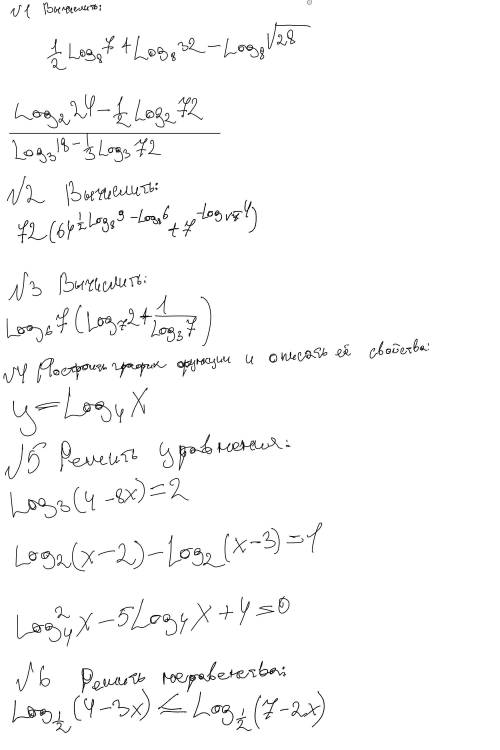 √1 Вычислить:
1/2 Log₈7 + Log₈32 − Log₈√28
Log₂24 − 1/2 Log₂72
Log₃18 − 1/3 Log₃72
√2 Вычислить:
72 (64^(1/2 Log₈9 − Log₈6) + 7^(−Log√8 4))
√3 Вычислить:
Log₆7 (Log₇2 + 1/Log₃7)
√4 Построить график функции и описать её свойства:
y = Log₄X
√5 Решить уравнения:
Log₃(4 − 8x) = 2
Log₂(x − 2) − Log₂(x − 3) = 1
Log²₄X − 5Log₄X + 4 = 0
√6 Решить неравенства:
Log_1/2 (4 − 3x) ≤ Log_1/2 (7 − 2x)